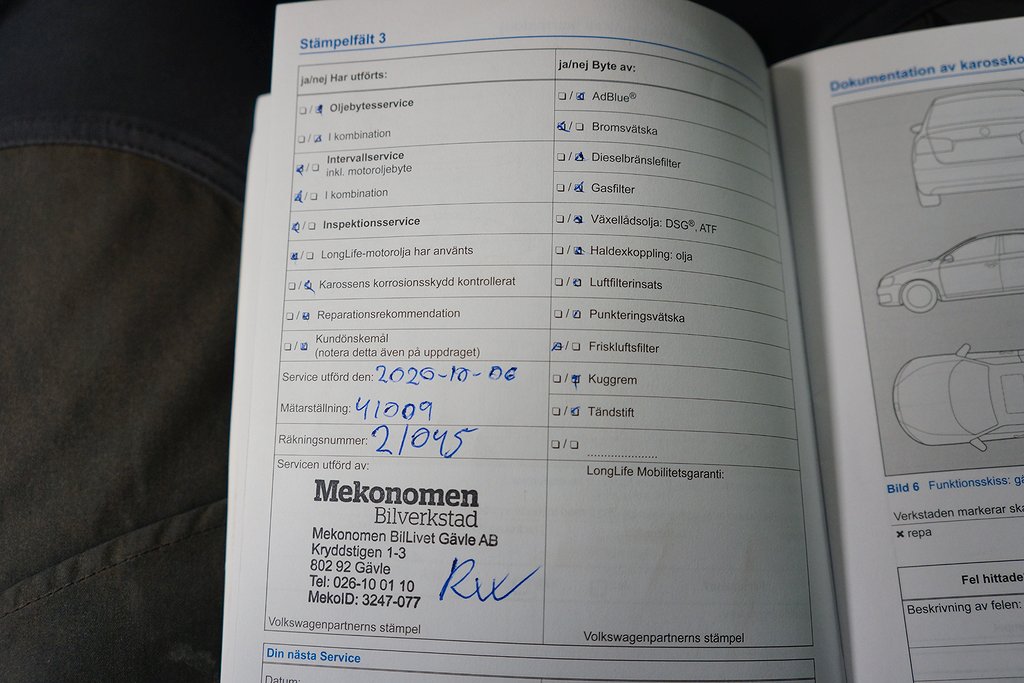 Stämpelfält 3
ja/nej Har utförts:
☐ / ☑ Oljebytesservice
☐ / ☑ I kombination
☑ / ☐ Intervallservice
inkl. motoroljebyte
☑ / ☐ I kombination
☑ / ☐ Inspektionsservice
☑ / ☐ LongLife-motorolja har använts
☐ / ☑ Karossens korrosionsskydd kontrollerat
☐ / ☑ Reparationsrekommendation
☐ / ☑ Kundönskemål
(notera detta även på uppdraget)
Service utförd den: 2020-10-06
Mätarställning: 41009
Räkningsnummer: 21045
Servicen utförd av:
Mekonomen
Bilverkstad
Mekonomen BilLivet Gävle AB
Kryddstigen 1-3
802 92 Gävle
Tel: 026-10 01 10
MekoID: 3247-077
Volkswagenpartnerns stämpel
ja/nej Byte av:
☐ / ☑ AdBlue®
☑ / ☐ Bromsvätska
☐ / ☑ Dieselbränslefilter
☐ / ☑ Gasfilter
☐ / ☑ Växellådsolja: DSG®, ATF
☐ / ☑ Haldexkoppling: olja
☐ / ☑ Luftfilterinsats
☐ / ☑ Punkteringsvätska
☑ / ☐ Friskluftsfilter
☐ / ☑ Kuggrem
☐ / ☑ Tändstift
☐ / ☐ ......................
LongLife Mobilitetsgaranti:
Volkswagenpartnerns stämpel
Din nästa Service
Datum:
Dokumentation av
Bild 6 Funktionsskiss:
Verkstaden markerar
✖ repa
Fel
Beskrivning av felen: